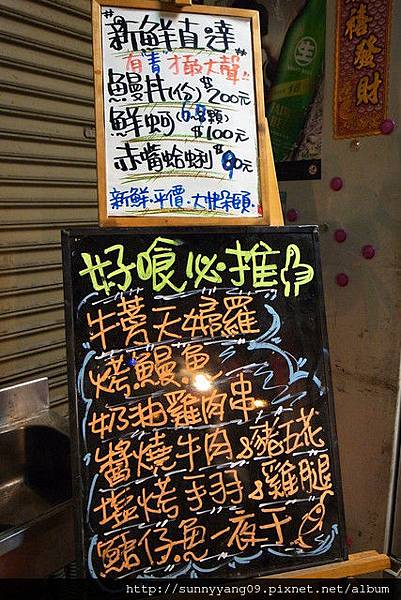 新鮮直達
有"青"才敢大聲
鰻片(份)$200元
鮮蚵(6.8顆)$100元
赤嘴蛤蜊$60元
新鮮.平價.大快朵頤
好喰必推
牛蒡天婦羅
烤鰻魚
奶油雞肉串
醬燒牛肉&豬五花
塩烤手羽&雞腿
鯖仔魚一夜干
禧發財
生
http://sunnyyang09.pixnet.net/album